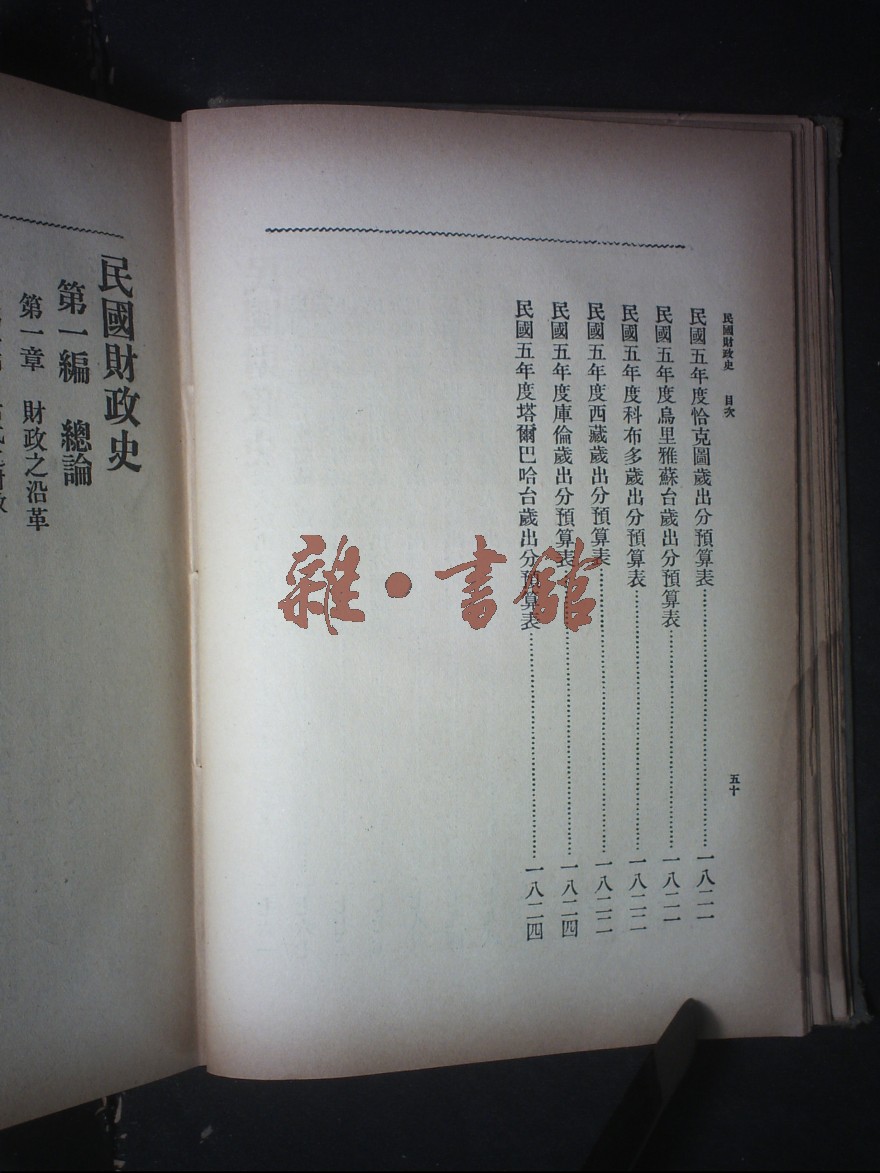 民國財政史 目次
五十
民國五年度恰克圖歲出分預算表…………一八二一
民國五年度烏里雅蘇台歲出分預算表…………一八二一
民國五年度科布多歲出分預算表…………一八二二
民國五年度西藏歲出分預算表…………一八二二
民國五年度庫倫歲出分預算表…………一八二四
民國五年度塔爾巴哈台歲出分預算表…………一八二四
民國財政史
第一編 總論
第一章 財政之沿革
雜·書館